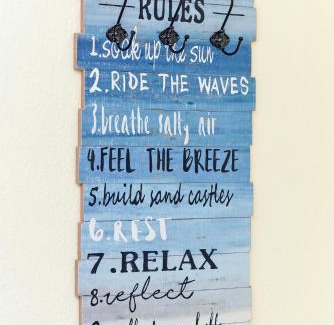 RULES
1.soak up the sun
2.RIDE THE WAVES
3.breathe salty air
4.FEEL THE BREEZE
5.build sand castles
6.REST
7.RELAX
8.reflect